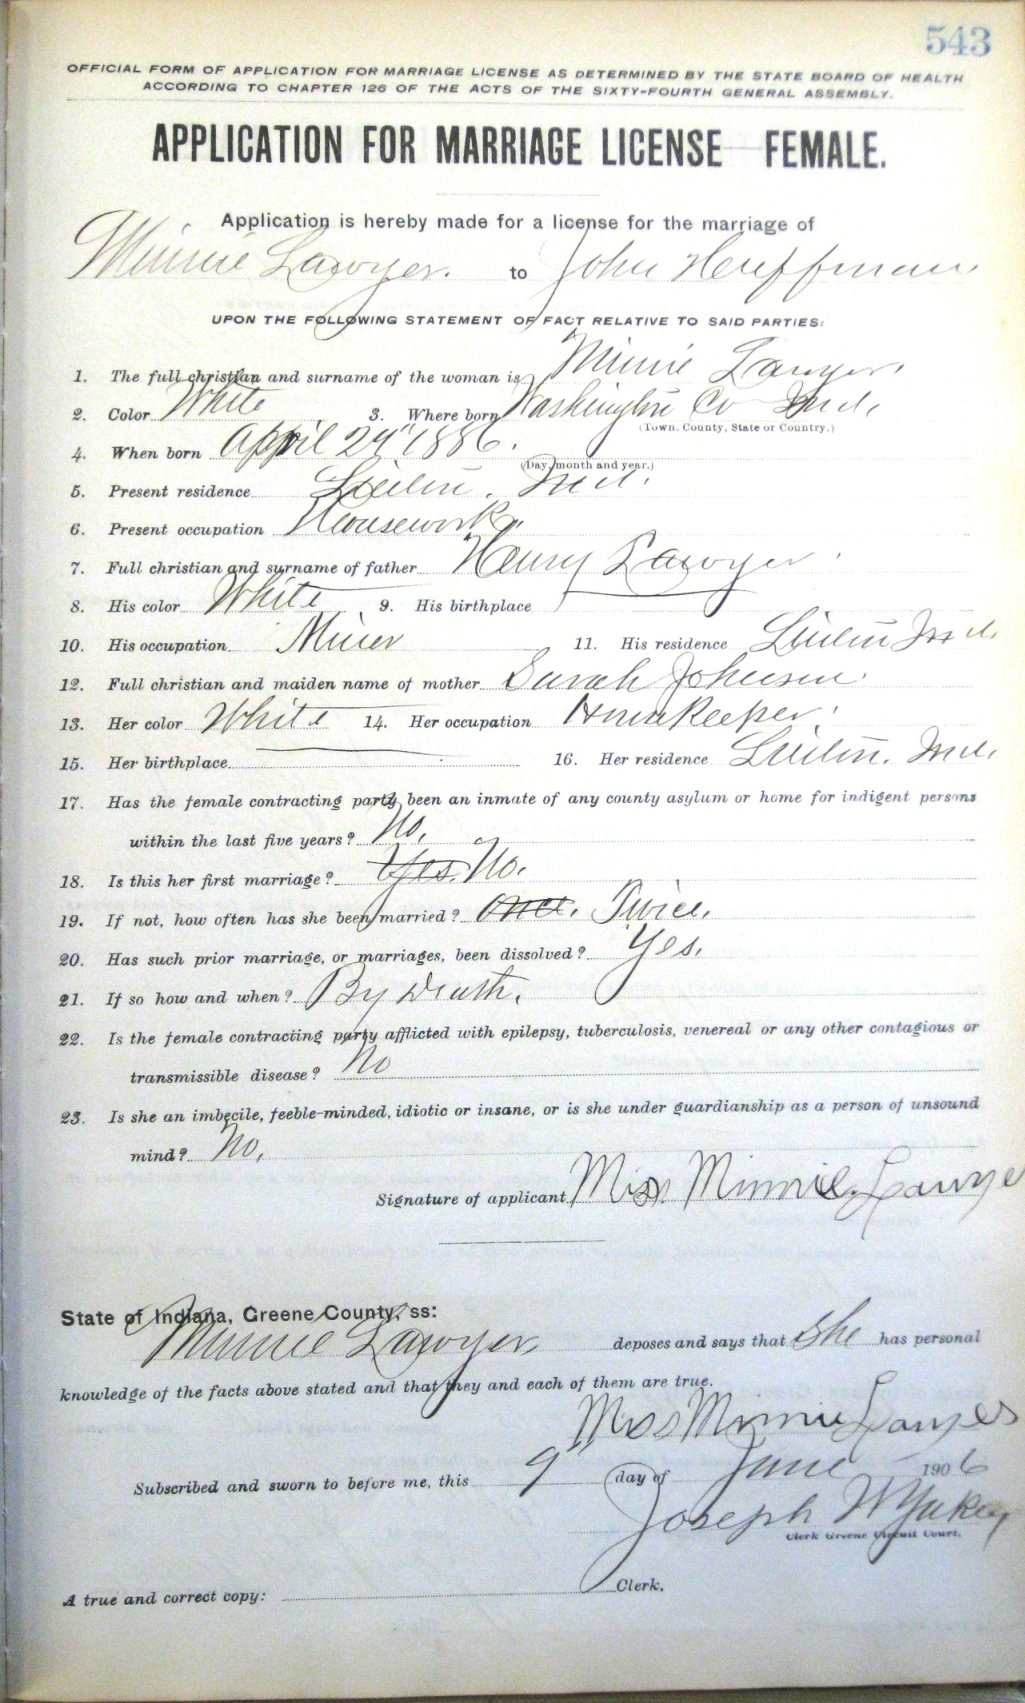 543
OFFICIAL FORM OF APPLICATION FOR MARRIAGE LICENSE AS DETERMINED BY THE STATE BOARD OF HEALTH
ACCORDING TO CHAPTER 126 OF THE ACTS OF THE SIXTY-FOURTH GENERAL ASSEMBLY.
APPLICATION FOR MARRIAGE LICENSE FEMALE.
Application is hereby made for a license for the marriage of
Minnie Lawyer. to John Huffman
UPON THE FOLLOWING STATEMENT OF FACT RELATIVE TO SAID PARTIES:
1. The full christian and surname of the woman is Minnie Lawyer.
2. Color White 3. Where born Washington Co Ind.
(Town. County, State or Country.)
4. When born April 24" 1886.
(Day, month and year.)
5. Present residence Linton. Ind.
6. Present occupation Housework.
7. Full christian and surname of father Henry Lawyer
8. His color White 9. His birthplace
10. His occupation. Miner 11. His residence Linton Ind.
12. Full christian and maiden name of mother Sarah Johnson.
13. Her color White 14. Her occupation Housekeeper.
15. Her birthplace 16. Her residence Linton. Ind.
17. Has the female contracting party been an inmate of any county asylum or home for indigent persons
within the last five years? No.
18. Is this her first marriage? Yes. No.
19. If not, how often has she been married? Once. Twice.
20. Has such prior marriage, or marriages, been dissolved? Yes.
21. If so how and when? By Death.
22. Is the female contracting party afflicted with epilepsy, tuberculosis, venereal or any other contagious or
transmissible disease? No
23. Is she an imbecile, feeble-minded, idiotic or insane, or is she under guardianship as a person of unsound
mind? No.
Signature of applicant Miss Minnie Lawye
State of Indiana, Greene County, ss:
Minnie Lawyer deposes and says that she has personal
knowledge of the facts above stated and that they and each of them are true.
Miss Minnie Lawyer
Subscribed and sworn to before me, this 9 day of June 1906
Joseph W Yakey
Clerk Greene Circuit Court.
A true and correct copy: Clerk.